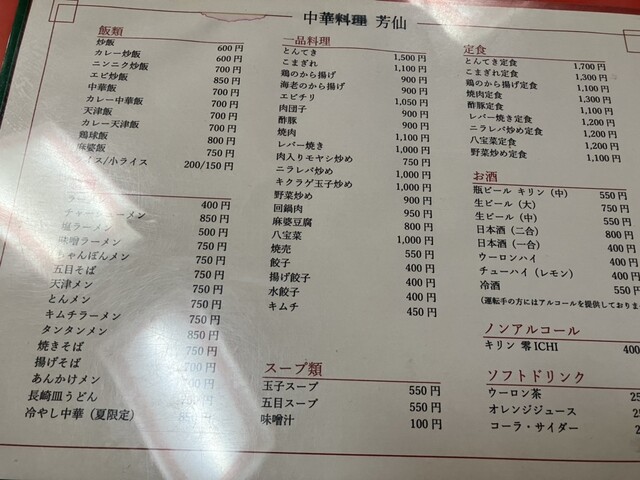 中華料理 芳仙
飯類
炒飯 600円
カレー炒飯 600円
ニンニク炒飯 700円
エビ炒飯 850円
中華飯 700円
カレー中華飯 700円
天津飯 700円
カレー天津飯 700円
鶏球飯 800円
麻婆飯 750円
イス/小ライス 200/150円
ラーメン 400円
チャーシューラーメン 850円
塩ラーメン 500円
味噌ラーメン 750円
ちゃんぽんメン 750円
五目そば 750円
天津メン 700円
とんメン 750円
キムチラーメン 750円
タンタンメン 850円
焼きそば 750円
揚げそば 700円
あんかけメン 700円
長崎皿うどん 750円
冷やし中華（夏限定） 850円
一品料理
とんてき 1,500円
こまぎれ 1,100円
鶏のから揚げ 900円
海老のから揚げ 900円
エビチリ 1,050円
肉団子 900円
酢豚 900円
焼肉 1,100円
レバー焼き 1,000円
肉入りモヤシ炒め 750円
ニラレバ炒め 1,000円
キクラゲ玉子炒め 1,000円
野菜炒め 900円
回鍋肉 950円
麻婆豆腐 800円
八宝菜 1,000円
焼売 550円
餃子 400円
揚げ餃子 400円
水餃子 400円
キムチ 450円
スープ類
玉子スープ 550円
五目スープ 550円
味噌汁 100円
定食
とんてき定食 1,700円
こまぎれ定食 1,300円
鶏のから揚げ定食 1,100円
焼肉定食 1,300円
酢豚定食 1,100円
レバー焼き定食 1,200円
ニラレバ炒め定食 1,200円
八宝菜定食 1,200円
野菜炒め定食 1,100円
お酒
瓶ビール キリン（中） 550円
生ビール（大） 750円
生ビール（中） 550円
日本酒（二合） 800円
日本酒（一合） 400円
ウーロンハイ 400円
チューハイ（レモン） 400円
冷酒 550円
（運転手の方にはアルコールを提供しておりま
ノンアルコール
キリン 零ICHI 400
ソフトドリンク
ウーロン茶 25
オレンジジュース 25
コーラ・サイダー 2